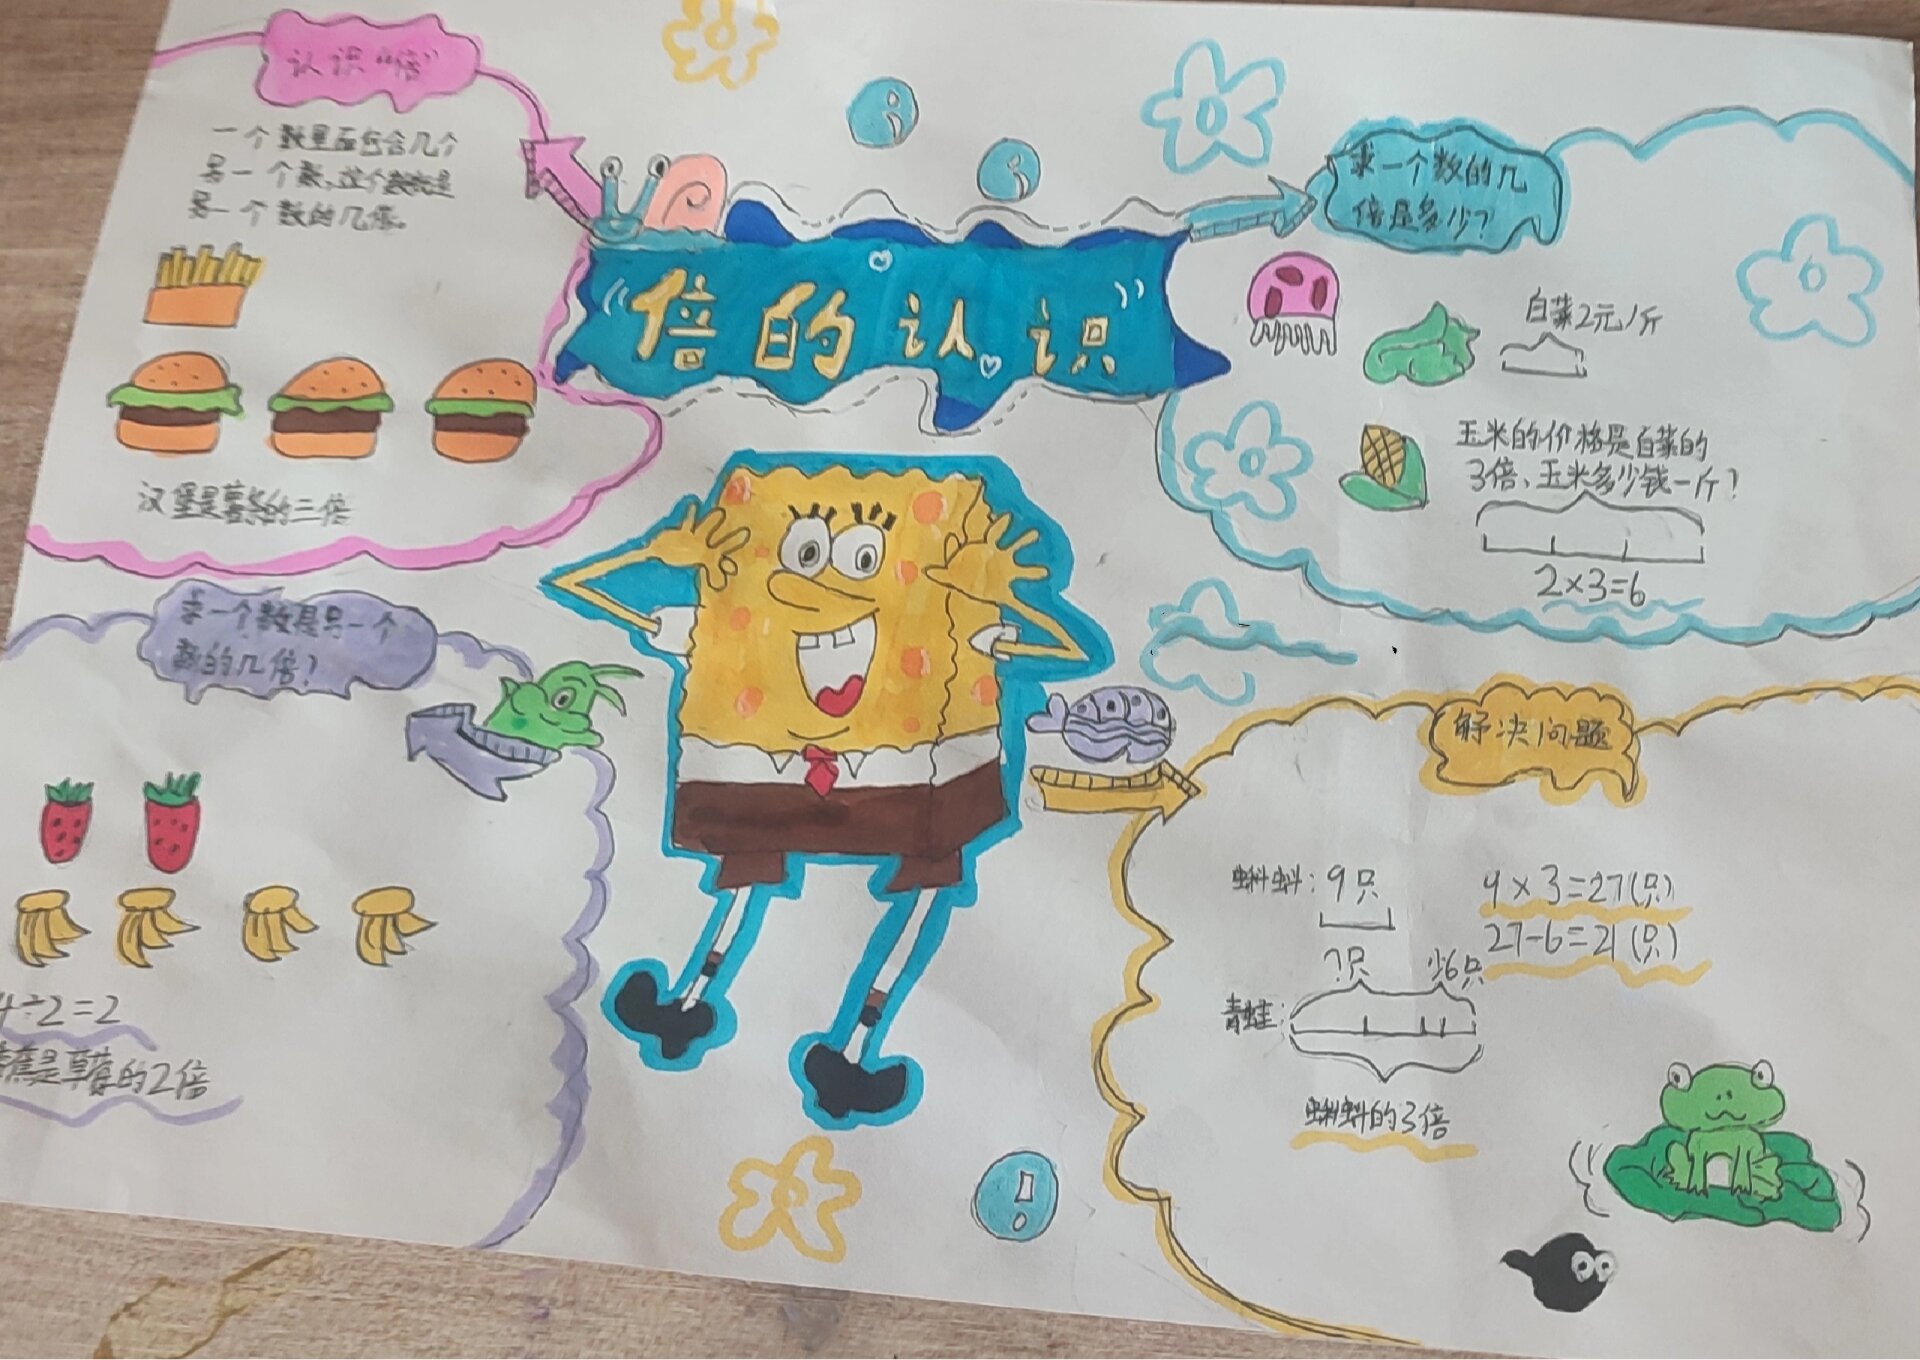 “倍的认识”
认识“倍”
一个数里面包含几个
另一个数,这个数就是
另一个数的几倍。
汉堡是薯条的三倍
求一个数的几
倍是多少?
白菜2元/斤
玉米的价格是白菜的
3倍、玉米多少钱一斤?
2×3=6
求一个数是另一个
数的几倍?
4÷2=2
蕉是草莓的2倍
解决问题
蝌蚪:9只
9×3=27(只)
27-6=21(只)
?只 少6只
青蛙:
蝌蚪的3倍